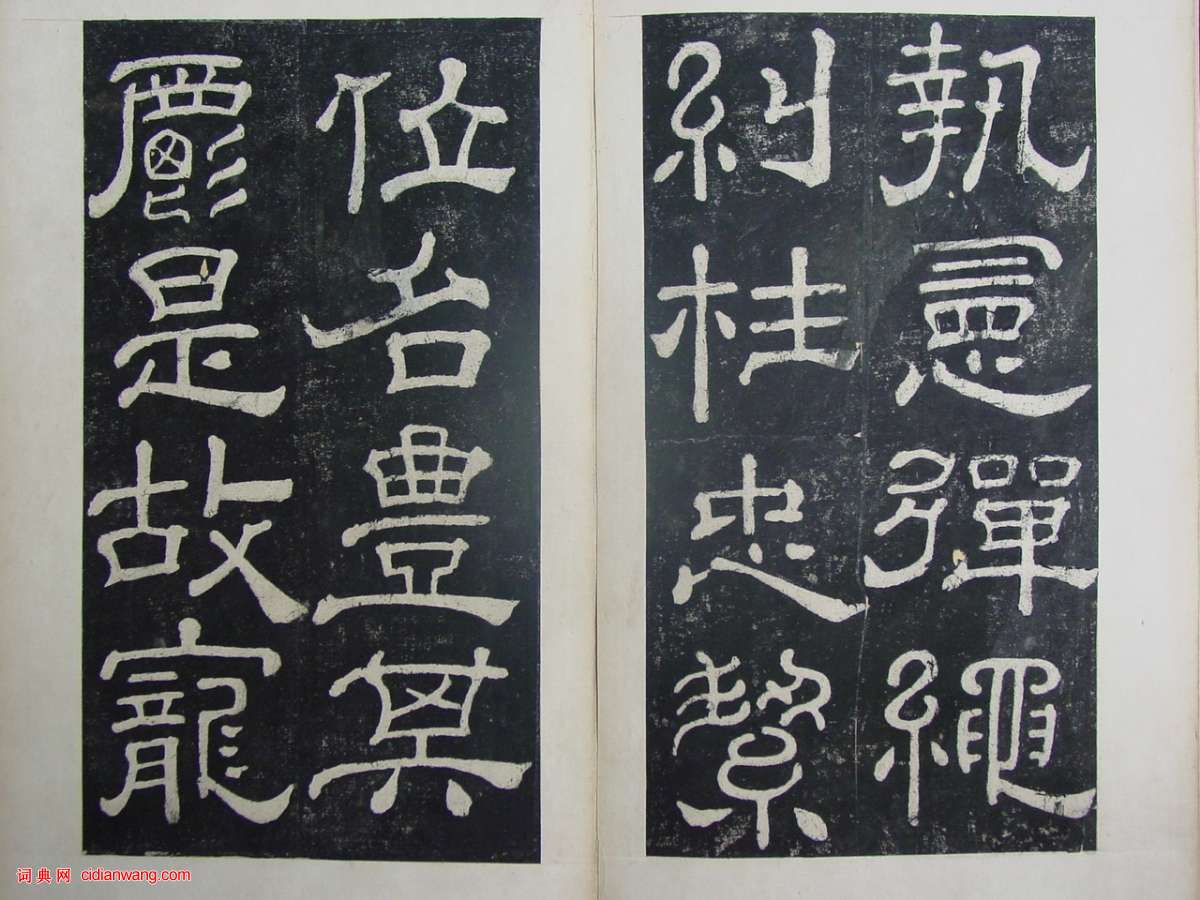 執憲彈繩
糾枉忠絜
位名豐其
爵是故寵
词典网 cidianwang.com